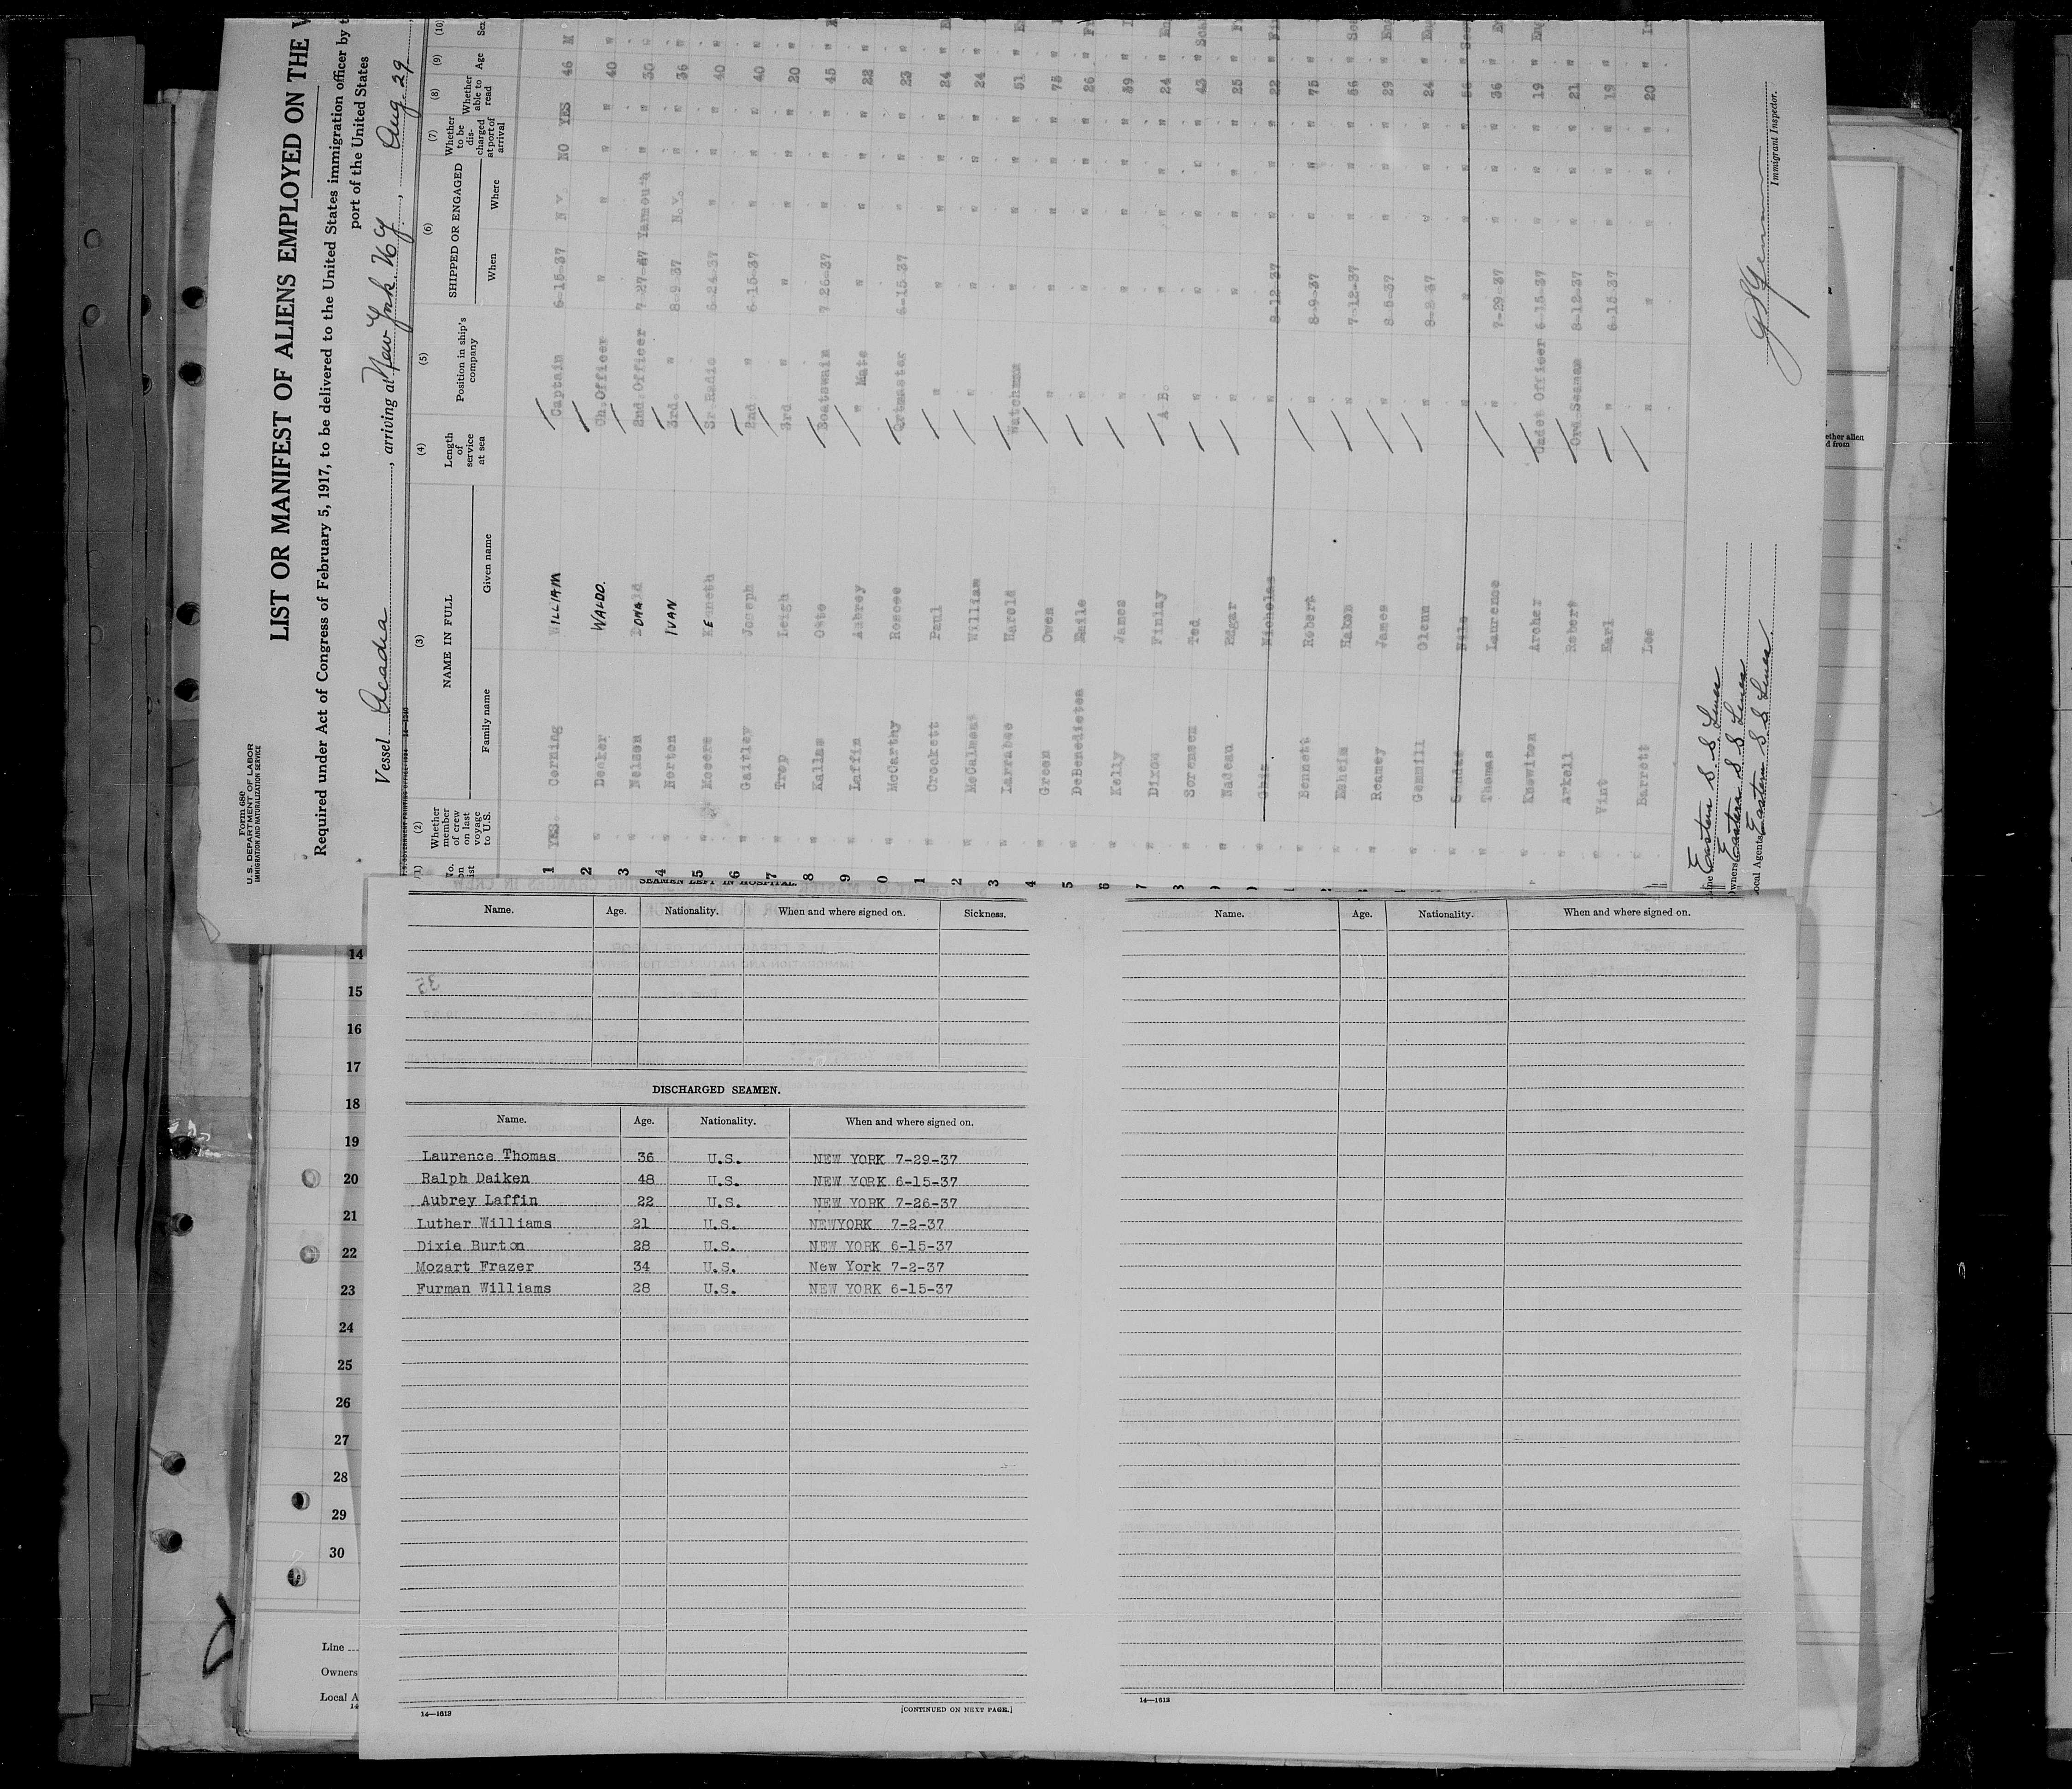 Form 680
U.S. DEPARTMENT OF LABOR
IMMIGRATION AND NATURALIZATION SERVICE
LIST OR MANIFEST OF ALIENS EMPLOYED ON THE
Required under Act of Congress of February 5, 1917, to be delivered to the United States immigration officer by
port of the United States
Vessel Acadia, arriving at New York N Y, Aug. 29,
(1) (2) (3) (4) (5) (6) (7) (8) (9) (10)
No. on list Whether member of crew on last voyage to U.S. NAME IN FULL Family name Given name Length of service at sea Position in ship's company SHIPPED OR ENGAGED When Where Whether to be discharged at port of arrival Whether able to read Age Sex
1 YES Corning WILLIAM Captain 6-15-37 N Y. NO YES 46 M
2 " Decker WALDO. Ch. Officer " " " " 40 "
3 " Nelson DONAld 2nd. Officer 7-27-37 Yarmouth " " 30 "
4 " Norton IVAN 3rd. " 8-9-37 N.Y. " " 36 "
5 " Kenneth Sr Radio 6-24-37 " " " 40 "
6 " Gaitley Joseph 2nd. " 6-15-37 " " " 40 "
7 " Leigh 3rd " " " " 20 "
8 " Kallas Otto Boatswain 7-26-37 " " " 45 "
9 " Laffin Aubrey " Mate " " " " 22 "
0 " McCarthy Roscoe Qrtmaster 6-15-37 " " " 23 "
1 " Crockett Paul " " " " " 24 "
2 " McCalmont William " " " " " 24 "
3 " Larrabee Harold Watchman " " " " 51 "
4 " Green Owen " " " " " 75 "
5 " DeBenedictea Emile " " " " " 26 "
6 " Kelly James " " " " " 59 "
7 " Dixon Finlay A B. " " " " 24 "
8 " Sorensen Ted " " " " " 43 "
9 " Nadeau Edgar " " " " " 25 "
Nicholas " 8-12-37 " " " 22 "
Bennett Robert " 8-9-37 " " " 75 "
Esheim Hakon " 7-12-37 " " " 56 "
Reamey James " 8-5-37 " " " 29 "
Gemmill Glenn " 8-2-37 " " " 24 "
Nils " " " " " 56 "
Thomas Laurence " 7-29-37 " " " 36 "
Knewiton Archer Cadet Officer 6-15-37 " " " 19 "
Arkell Robert Ord Seaman 8-12-37 " " " 21 "
Vint Karl " 6-15-37 " " " 19 "
Barrett Lee " " " " " 20 "
Line Eastern S S Lines
Owners Eastern S S Lines
Local Agents Eastern S S Lines
Immigrant Inspector.
SEAMEN LEFT IN HOSPITAL.
Name. Age. Nationality. When and where signed on. Sickness.
35
DISCHARGED SEAMEN.
Name. Age. Nationality. When and where signed on.
Laurence Thomas 36 U.S. NEW YORK 7-29-37
Ralph Daiken 48 U.S. NEW YORK 6-15-37
Aubrey Laffin 22 U.S. NEW YORK 7-26-37
Luther Williams 21 U.S. NEWYORK 7-2-37
Dixie Burton 28 U.S. NEW YORK 6-15-37
Mozart Frazer 34 U.S. New York 7-2-37
Furman Williams 28 U.S. NEW YORK 6-15-37
14—1613
[CONTINUED ON NEXT PAGE.]
Name. Age. Nationality. When and where signed on.
14—1613
14
15
16
17
18
19
20
21
22
23
24
25
26
27
28
29
30
Line
Owners
Local A
14